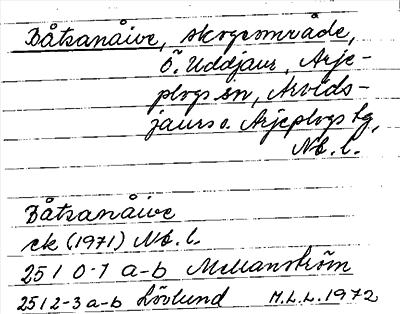 Båtsanåive, skogsområde,
Ö. Uddjaur, Arje-
plogs sn, Arvids-
jaurs o. Arjeplogs tg,
Nb. l.
Båtsanåive
ek (1971) Nb. l.
25 I 0-1 a-b Mellanström
25 I 2-3 a-b Lövlund M.L.L. 1972